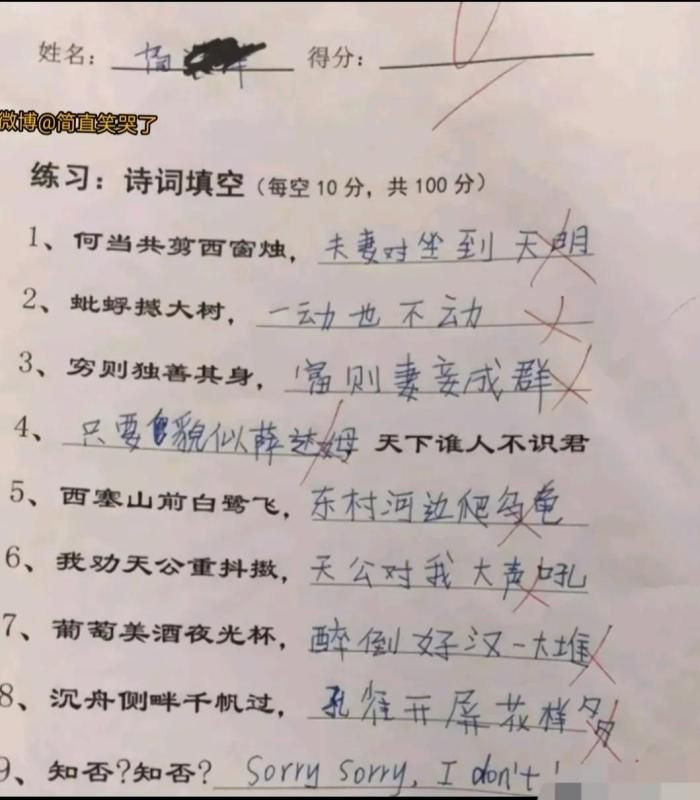 姓名： 得分：
微博@简直笑哭了
练习：诗词填空（每空10分，共100分）
1、何当共剪西窗烛，夫妻对坐到天明
2、蚍蜉撼大树，一动也不动
3、穷则独善其身，富则妻妾成群
4、只要貌似薛达姆 天下谁人不识君
5、西塞山前白鹭飞，东村河边爬乌龟
6、我劝天公重抖擞，天公对我大声吼
7、葡萄美酒夜光杯，醉倒好汉一大堆
8、沉舟侧畔千帆过，孔雀开屏花样多
9、知否？知否？Sorry sorry, I don't